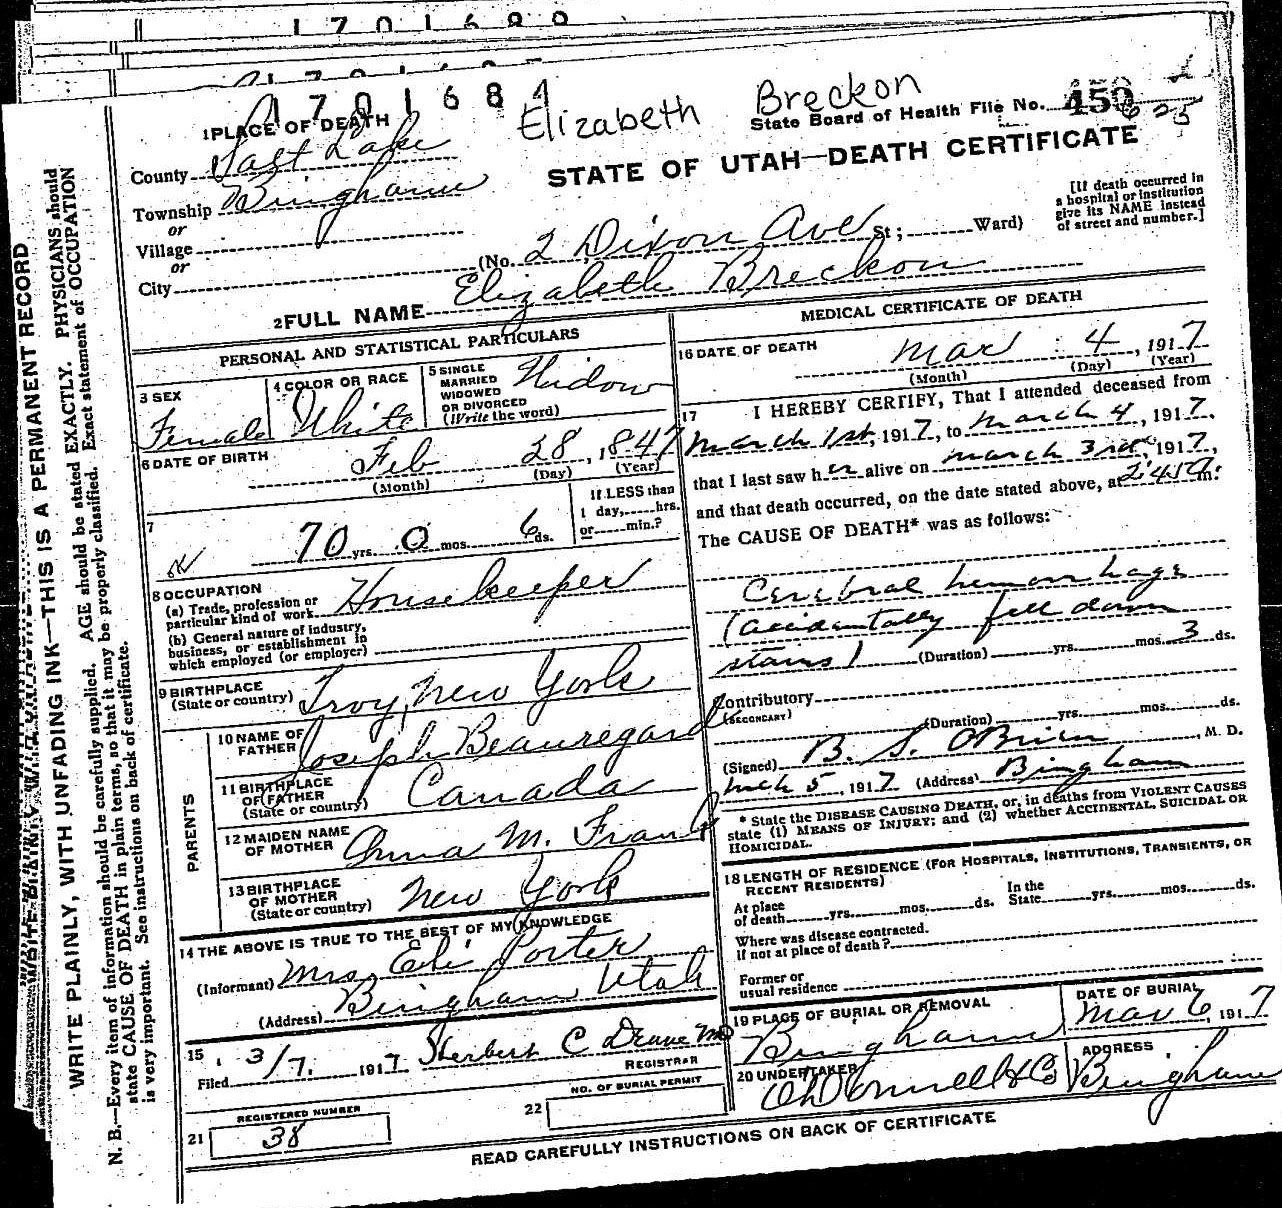 1701688
1701684
Elizabeth Breckon
State Board of Health File No. 450
625
STATE OF UTAH—DEATH CERTIFICATE
1 PLACE OF DEATH
County Salt Lake
Township Bingham
or
Village
or
City
(No. 2 Dixon Ave St; Ward)
[If death occurred in
a hospital or institution
give its NAME instead
of street and number.]
2 FULL NAME Elizabeth Breckon
PERSONAL AND STATISTICAL PARTICULARS
3 SEX
Female
4 COLOR OR RACE
White
5 SINGLE
MARRIED
WIDOWED
OR DIVORCED
(Write the word)
Widow
6 DATE OF BIRTH
Feb 28, 1847
(Month) (Day) (Year)
7
70 yrs. 0 mos. 6 ds.
If LESS than
1 day, hrs.
or min.?
8 OCCUPATION
(a) Trade, profession or
particular kind of work Housekeeper
(b) General nature of industry,
business, or establishment in
which employed (or employer)
9 BIRTHPLACE
(State or country) Troy, New York
PARENTS
10 NAME OF
FATHER Joseph Beauregard
11 BIRTHPLACE
OF FATHER
(State or country) Canada
12 MAIDEN NAME
OF MOTHER Anna M. Frank
13 BIRTHPLACE
OF MOTHER
(State or country) New York
14 THE ABOVE IS TRUE TO THE BEST OF MY KNOWLEDGE
(Informant) Mrs. Eli Porter
(Address) Bingham Utah
15
Filed 3/7. 1917 Herbert C
REGISTRAR
REGISTERED NUMBER
21 38
NO. OF BURIAL PERMIT
22
MEDICAL CERTIFICATE OF DEATH
16 DATE OF DEATH
Mar 4, 1917
(Month) (Day) (Year)
17 I HEREBY CERTIFY, That I attended deceased from
March 1st, 1917, to March 4, 1917.
that I last saw her alive on March 3rd, 1917,
and that death occurred, on the date stated above, at 2:45 a. m.
The CAUSE OF DEATH* was as follows:
Cerebral hemorrhage
(accidentally fell down
stairs) (Duration) yrs. mos. 3 ds.
Contributory
(SECONDARY)
(Duration) yrs. mos. ds.
(Signed) B. S. O'Brien, M. D.
Mch 5, 1917 (Address) Bingham
* State the DISEASE CAUSING DEATH, or, in deaths from VIOLENT CAUSES
state (1) MEANS OF INJURY; and (2) whether ACCIDENTAL, SUICIDAL OR
HOMICIDAL.
18 LENGTH OF RESIDENCE (FOR HOSPITALS, INSTITUTIONS, TRANSIENTS, OR
RECENT RESIDENTS)
At place
of death yrs. mos. ds.
In the
State yrs. mos. ds.
Where was disease contracted.
if not at place of death?
Former or
usual residence
19 PLACE OF BURIAL OR REMOVAL
Bingham
DATE OF BURIAL
Mar 6, 1917
20 UNDERTAKER
O'Donnell & Co
ADDRESS
Bingham
READ CAREFULLY INSTRUCTIONS ON BACK OF CERTIFICATE
WRITE PLAINLY, WITH UNFADING INK—THIS IS A PERMANENT RECORD
N. B.—Every item of information should be carefully supplied. AGE should be stated EXACTLY. PHYSICIANS should
state CAUSE OF DEATH in plain terms, so that it may be properly classified. Exact statement of OCCUPATION
is very important. See instructions on back of certificate.